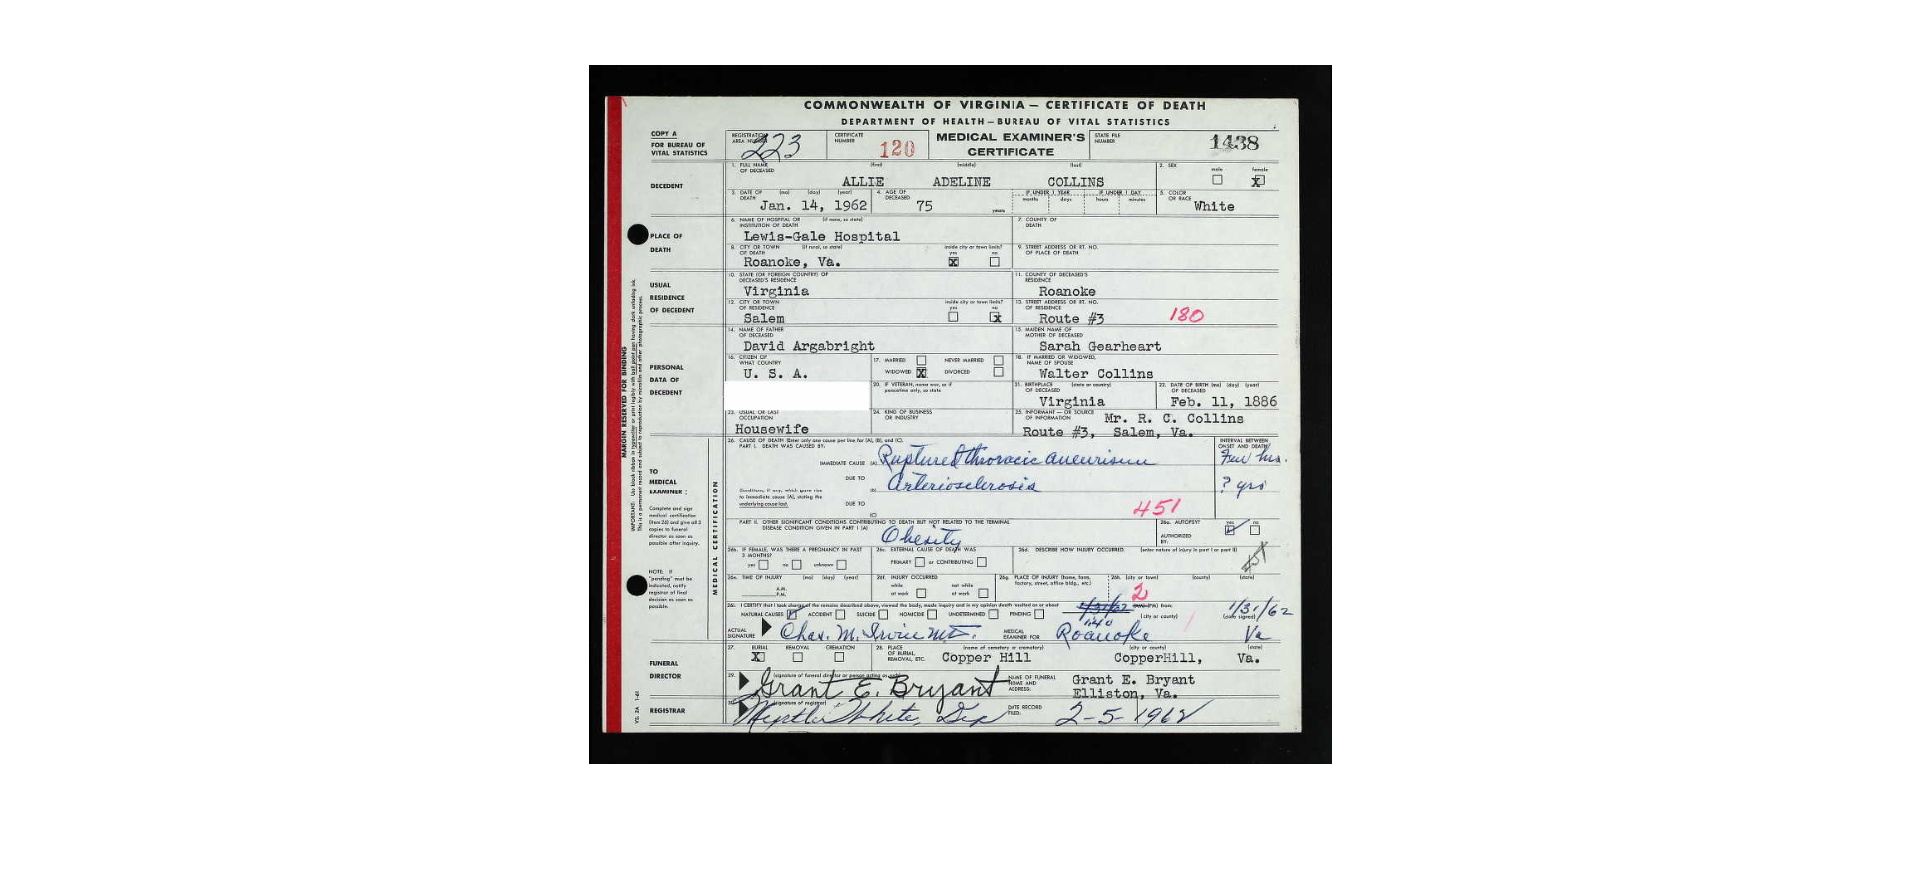 COMMONWEALTH OF VIRGINIA — CERTIFICATE OF DEATH
DEPARTMENT OF HEALTH — BUREAU OF VITAL STATISTICS
COPY A
FOR BUREAU OF
VITAL STATISTICS
REGISTRATION
AREA NUMBER 223
CERTIFICATE
NUMBER 120
MEDICAL EXAMINER'S
CERTIFICATE
STATE FILE
NUMBER 1438
DECEDENT
1. FULL NAME (first) (middle) (last)
OF DECEASED
ALLIE ADELINE COLLINS
2. SEX
male female
X
3. DATE OF (mo) (day) (year)
DEATH Jan. 14, 1962
4. AGE OF
DECEASED 75 years
IF UNDER 1 YEAR IF UNDER 1 DAY
months days hours minutes
5. COLOR
OR RACE White
PLACE OF
DEATH
6. NAME OF HOSPITAL OR (if none, so state)
INSTITUTION OF DEATH
Lewis-Gale Hospital
7. COUNTY OF
DEATH
8. CITY OR TOWN (if rural, so state)
OF DEATH
inside city or town limits?
yes no
Roanoke, Va. X
9. STREET ADDRESS OR RT. NO.
OF PLACE OF DEATH
USUAL
RESIDENCE
OF DECEDENT
10. STATE (OR FOREIGN COUNTRY) OF
DECEASED'S RESIDENCE
Virginia
11. COUNTY OF DECEASED'S
RESIDENCE
Roanoke
12. CITY OR TOWN
OF RESIDENCE
inside city or town limits?
yes no
Salem X
13. STREET ADDRESS OR RT. NO.
OF RESIDENCE
Route #3 180
PERSONAL
DATA OF
DECEDENT
14. NAME OF FATHER
OF DECEASED
David Argabright
15. MAIDEN NAME OF
MOTHER OF DECEASED
Sarah Gearheart
16. CITIZEN OF
WHAT COUNTRY
U. S. A.
17. MARRIED NEVER MARRIED
WIDOWED X DIVORCED
18. IF MARRIED OR WIDOWED,
NAME OF SPOUSE
Walter Collins
20. IF VETERAN, name war, or if
peacetime only, so state
21. BIRTHPLACE (state or country)
OF DECEASED
Virginia
22. DATE OF BIRTH (mo) (day) (year)
OF DECEASED
Feb. 11, 1886
23. USUAL OR LAST
OCCUPATION
Housewife
24. KIND OF BUSINESS
OR INDUSTRY
25. INFORMANT — OR SOURCE
OF INFORMATION Mr. R. C. Collins
Route #3, Salem, Va.
MARGIN RESERVED FOR BINDING
MEDICAL CERTIFICATION
TO
MEDICAL
EXAMINER:
Complete and sign
medical certification
(item 26) and give all 3
copies to funeral
director as soon as
possible after inquiry.
NOTE: If
"pending" must be
indicated, notify
registrar of final
decision as soon as
possible.
26. CAUSE OF DEATH (Enter only one cause per line for (A), (B), and (C).
PART I. DEATH WAS CAUSED BY:
INTERVAL BETWEEN
ONSET AND DEATH
IMMEDIATE CAUSE (A) Ruptured thoracic aneurism Few hrs.
DUE TO
(B) Arteriosclerosis ? yrs
Conditions, if any, which gave rise
to immediate cause (A), stating the
underlying cause last.
DUE TO
(C)
451
PART II. OTHER SIGNIFICANT CONDITIONS CONTRIBUTING TO DEATH BUT NOT RELATED TO THE TERMINAL
DISEASE CONDITION GIVEN IN PART I (A)
Obesity
26a. AUTOPSY?
yes no
AUTHORIZED
BY:
26b. IF FEMALE, WAS THERE A PREGNANCY IN PAST
3 MONTHS?
yes no unknown
26c. EXTERNAL CAUSE OF DEATH WAS
PRIMARY or CONTRIBUTING
26d. DESCRIBE HOW INJURY OCCURRED (enter nature of injury in part I or part II)
26e. TIME OF INJURY (mo) (day) (year)
A.M.
P.M.
26f. INJURY OCCURRED
while not while
at work at work
26g. PLACE OF INJURY (home, farm,
factory, street, office bldg., etc.)
26h. (city or town) (county) (state)
2
26i. I CERTIFY that I took charge of the remains described above, viewed the body, made inquiry and in my opinion death resulted on or about
NATURAL CAUSES ACCIDENT SUICIDE HOMICIDE UNDETERMINED PENDING
(city or county) (date signed)
1/31/62
ACTUAL
SIGNATURE Chas. M. Irvin M.D.
MEDICAL
EXAMINER FOR Roanoke Va
FUNERAL
DIRECTOR
27. BURIAL REMOVAL CREMATION
X
28. PLACE
OF BURIAL,
REMOVAL, ETC.
(name of cemetery or crematory) (city or county) (state)
Copper Hill CopperHill, Va.
29. (signature of funeral director or person acting as such)
Grant E. Bryant
NAME OF FUNERAL
HOME AND
ADDRESS:
Grant E. Bryant
Elliston, Va.
REGISTRAR
30. (signature of registrar)
Myrtle White, Dep
DATE RECORD
FILED: 2-5-1962
VS. 2A 1-61